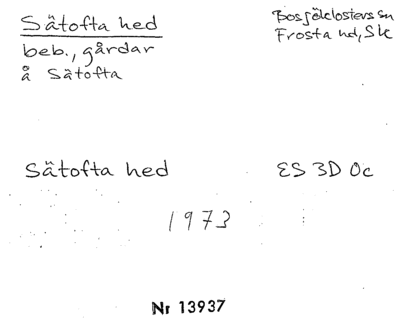 Sätofta hed
beb., gårdar
å Sätofta
Bosjöklosters sn
Frosta hd, Sk
Sätofta hed
ES 3D 0c
1973
Nr 13937